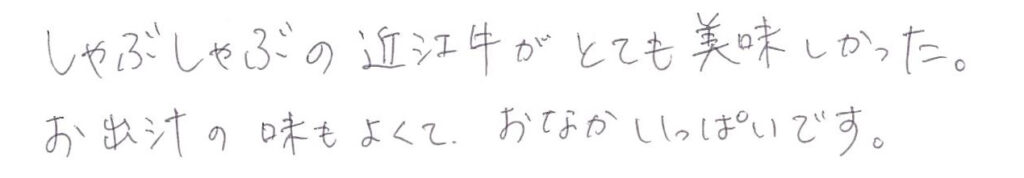 しゃぶしゃぶの近江牛がとても美味しかった。
お出汁の味もよくて、おなかいっぱいです。